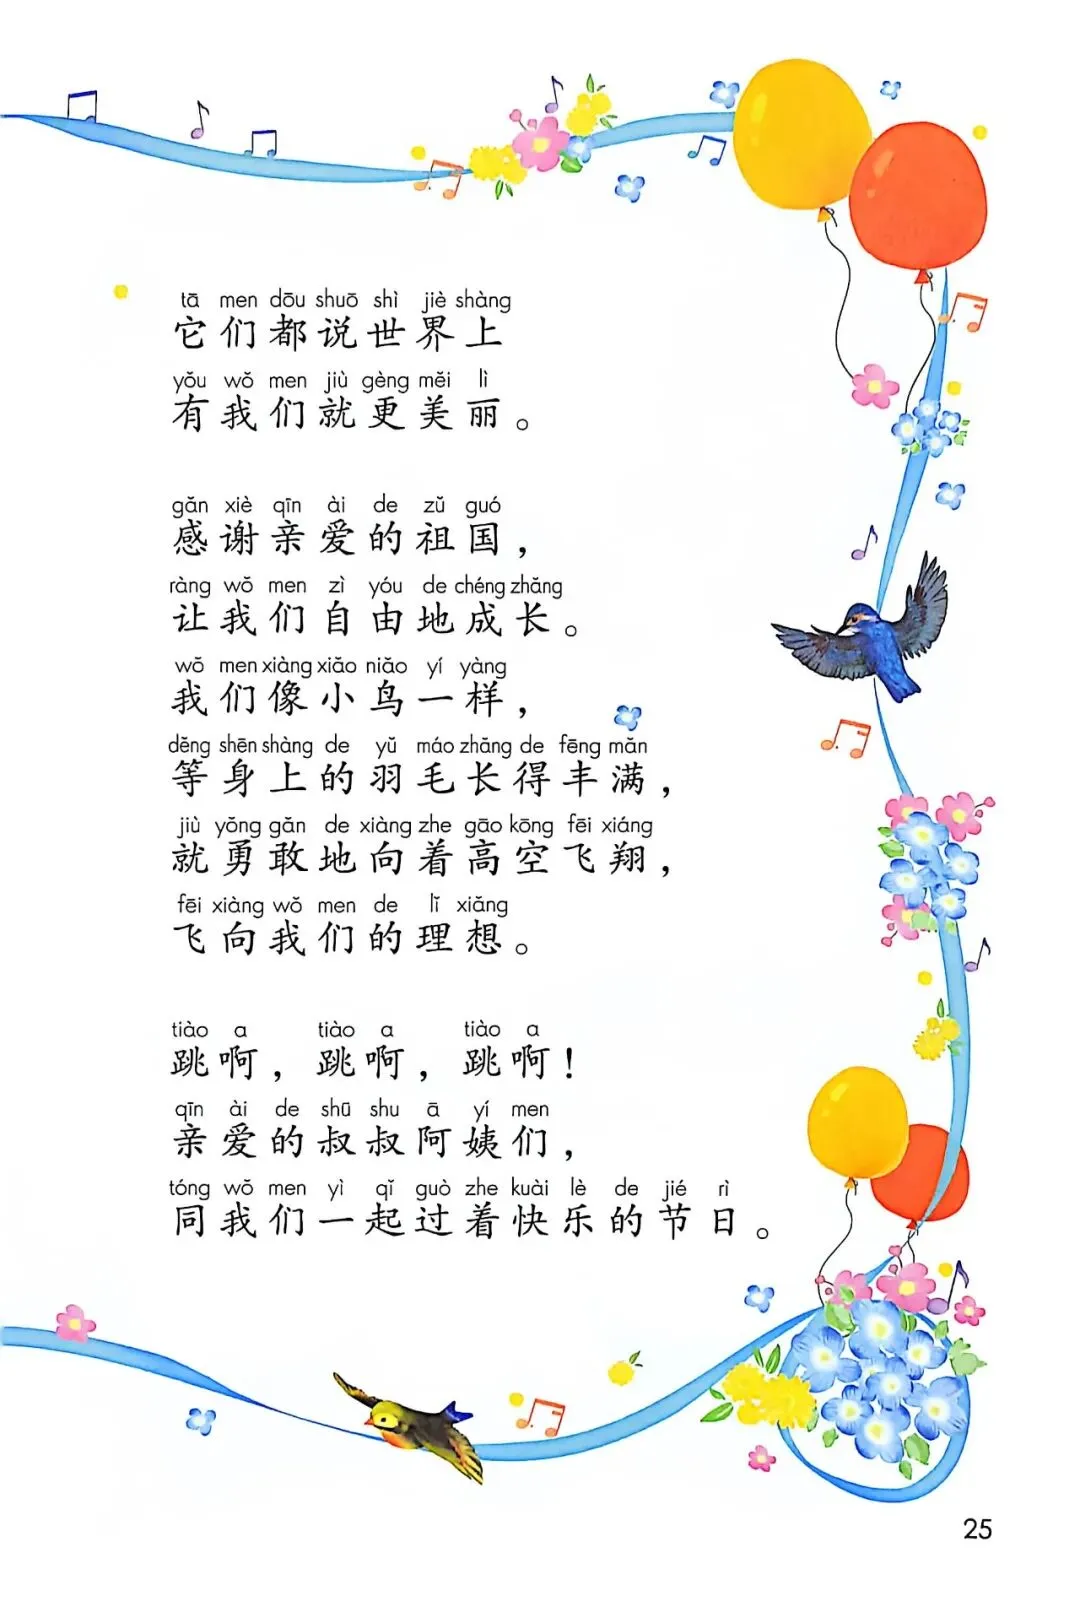 tā men dōu shuō shì jiè shàng
它们都说世界上
yǒu wǒ men jiù gèng měi lì
有我们就更美丽。
gǎn xiè qīn ài de zǔ guó
感谢亲爱的祖国，
ràng wǒ men zì yóu de chéng zhǎng
让我们自由地成长。
wǒ men xiàng xiǎo niǎo yí yàng
我们像小鸟一样，
děng shēn shàng de yǔ máo zhǎng de fēng mǎn
等身上的羽毛长得丰满，
jiù yǒng gǎn de xiàng zhe gāo kōng fēi xiáng
就勇敢地向着高空飞翔，
fēi xiàng wǒ men de lǐ xiǎng
飞向我们的理想。
tiào a tiào a tiào a
跳啊，跳啊，跳啊！
qīn ài de shū shu ā yí men
亲爱的叔叔阿姨们，
tóng wǒ men yì qǐ guò zhe kuài lè de jié rì
同我们一起过着快乐的节日。
25